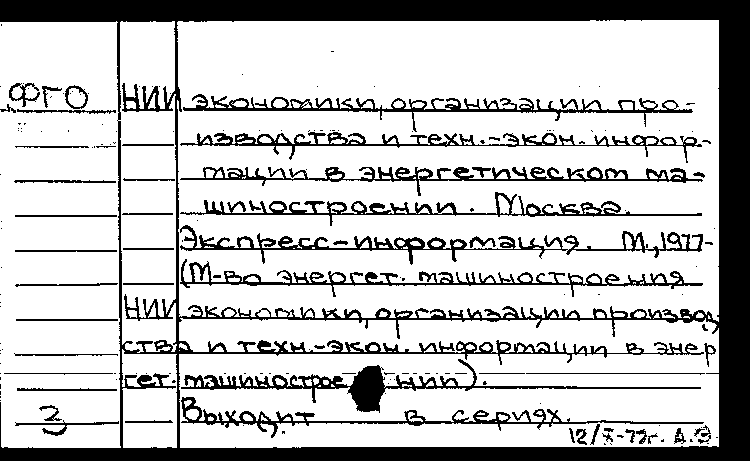 ФГО НИИ экономики, организации про-
изводства и техн.-экон. инфор-
мации в энергетическом ма-
шиностроении. Москва.
Экспресс-информация. М., 1977-
(М-во энергет. машиностроения
НИИ экономики, организации производ
ства и техн.-экон. информации в энер
гет. машинострое нии).
3 Выходит в сериях.
12/X-77г. А.Э.